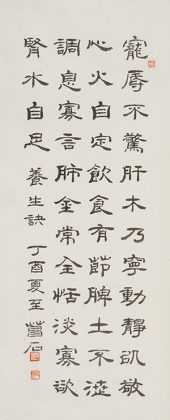 寵辱不驚肝木乃寧動靜以敬
心火自定飲食有節脾土不洩
調息寡言肺金常全恬淡寡欲
腎水自足 養生訣 丁酉夏至 石